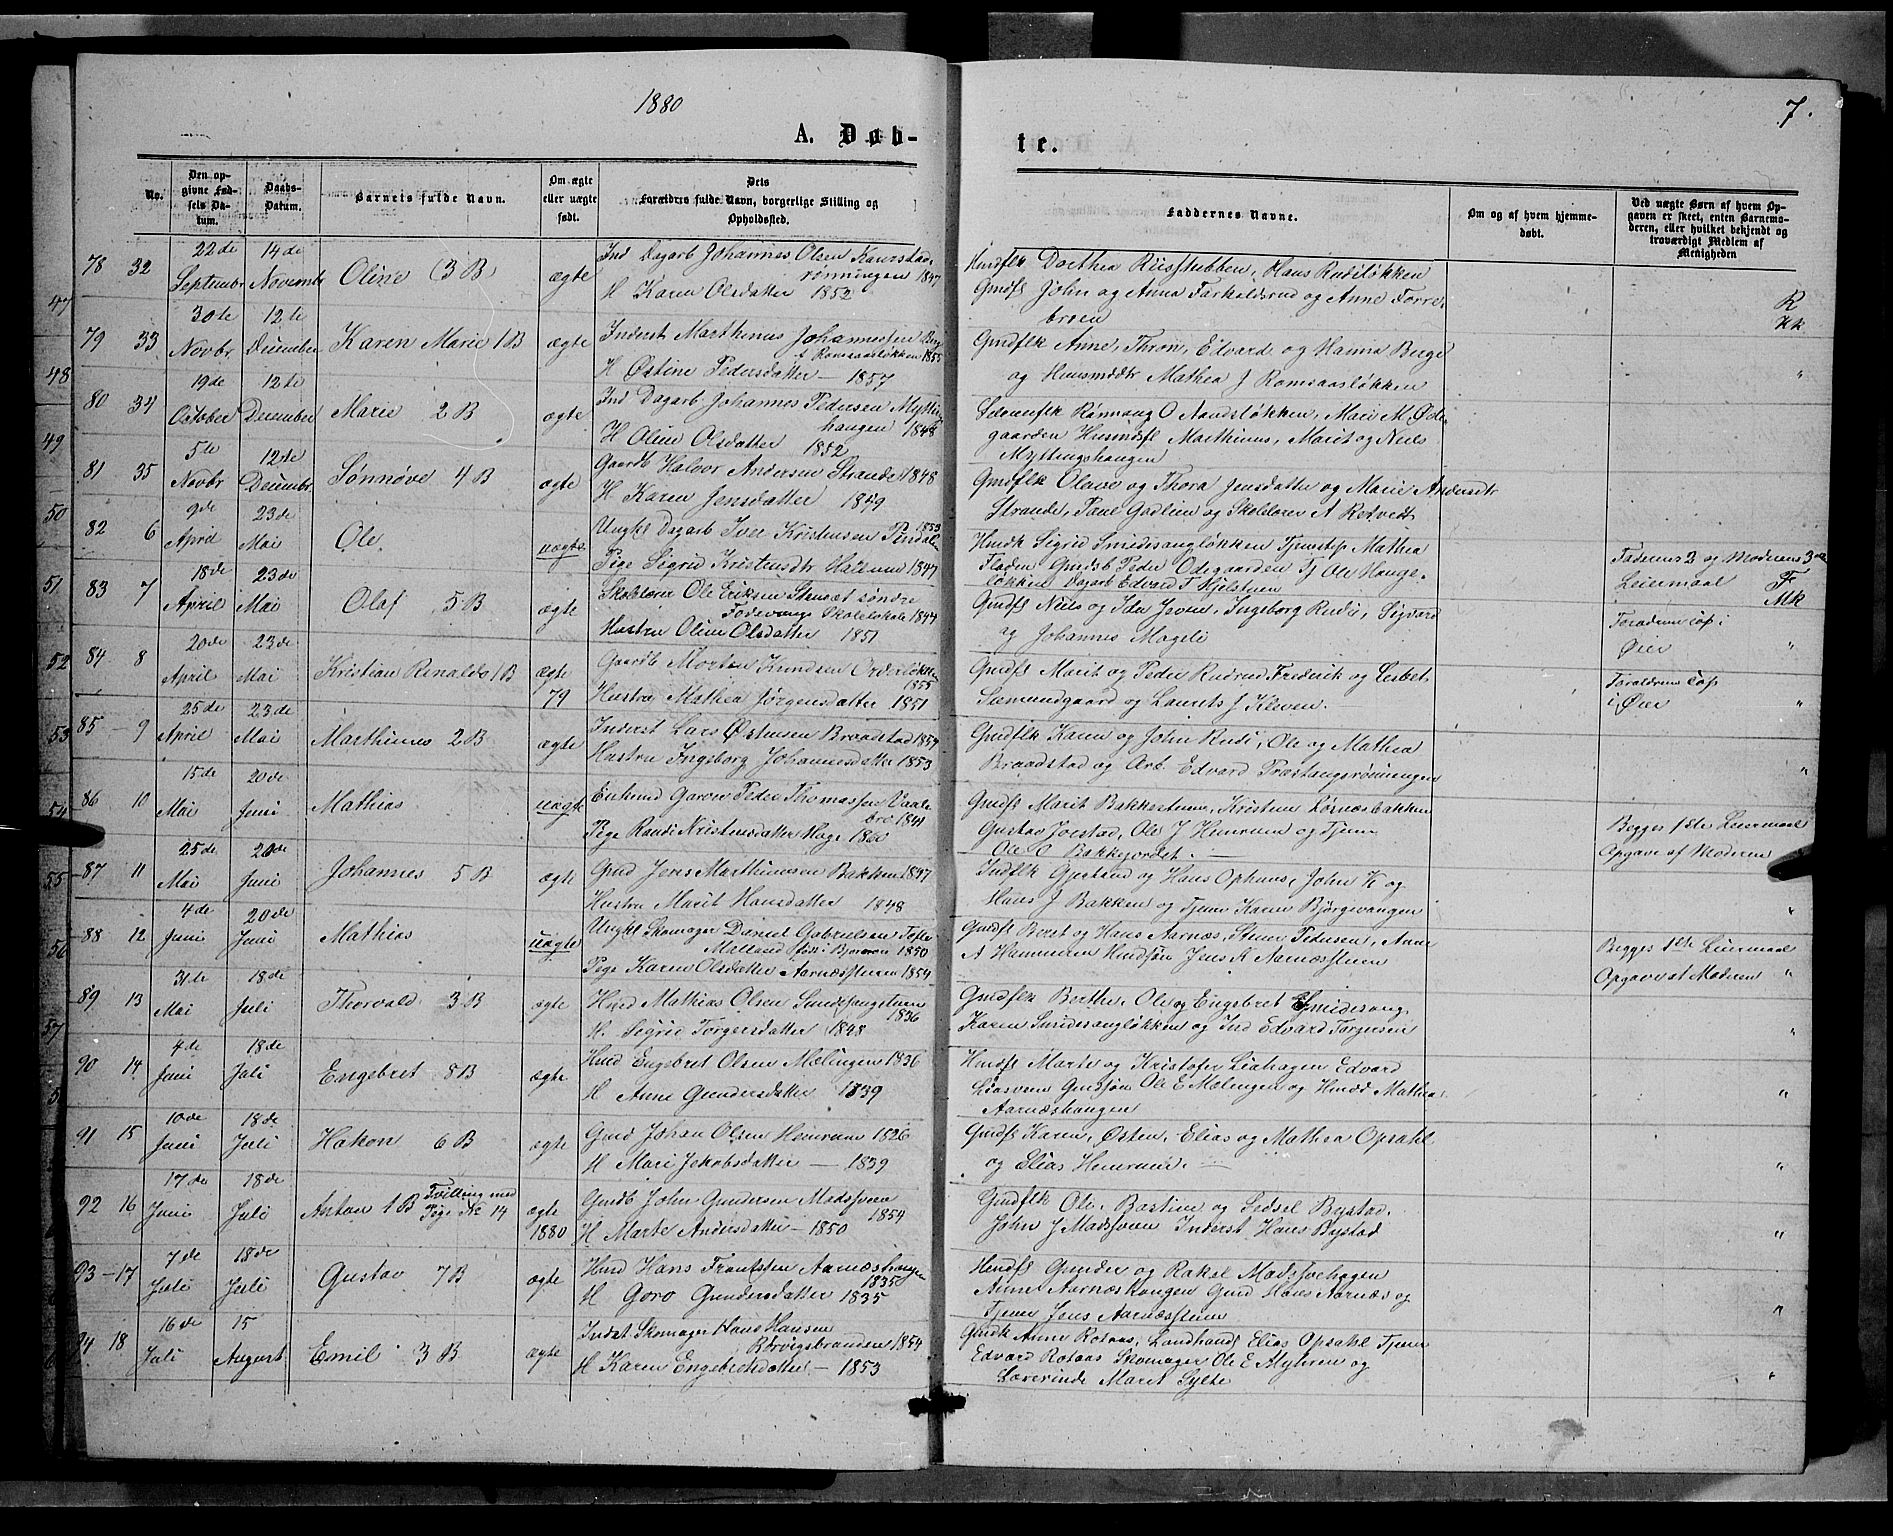 1880
7.
A. Døb-
te.
No.
Den op-
givne Fød-
sels Da-
tum.
Daabs-
Datum.
Barnets fulde Navn.
Om ægte
eller uægte
født.
Dets
Forældres fulde Navn, borgerlige Stilling og
Opholdssted.
Faddernes Navne.
Om og af hvem hjemme-
døbt.
Ved uægte Børn af hvem Op-
gaven er skeet, enten Barnemo-
deren, eller hvilket bekjendt og
troværdigt Medlem af
Menigheden
78 32
22de Septembr
14de Novembr
Oline (3 B)
ægte
Ind Dagarb Johannes Olsen Kanrstad-
rønningen 1847
H Karen Olsdatter 1852
Dorthea Riisstubben, Hans Rudiløkken
John og Anna Farkaldsrud og Anne Forre-
broen
R
Kk
79 33
30te Novbr
12te December
Karen Marie 1 B
ægte
Inderst Marthinus Johannessen Berg
f Romsaasløkken 1855
H Østine Pedersdatter — 1857
Gmdflk Anne, Thron, Edvard og Hanna Berge
og Huusmdtr Mathea J Romsaasløkken
"
80 34
19de October
12te December
Marie 2 B
ægte
Ind Dagarb Johannes Pedersen Mytting
haugen 1848
H Oline Olsdatter 1852
Rønnaug O Aandsløkken, Mari M. Øde-
gaarden Husmdfl Marthinus, Marit og Niels
Myttingshaugen
81 35
5te Novbr
12te Decembr
Sønnøve 4 B
ægte
Gaardb Halvor Andersen Strande 1848
H Karen Jensdatter 1849
Gmdflk Olave og Thora Jensdatter og Marie Andersdtr
Strande, Paul Godlien og Skolelærer A Retvedt
82 6
9de April
23de Mai
Ole
uægte
Ungkl Dagarb Iver Kristensen Pindalen 1853
Pige Sigrid Kristensdtr Hallum 1847
Hmdk Sigrid Smidesangløkken Tjenstep Mathea
Fladen Gmdsb Peder Odegaarden Tj Ole Hauge-
løkken Dagarb Edvard F Kjilstuen
Faderens 2 og Moderens 3die
Leiermaal
F
Mk
83 7
18de April
23de Mai
Olaf 5 B
ægte
Skolelærer Ole Eriksen Stensæt søndre
Fodevangs Skolelokale 1844
Hustru Oline Olsdatter 1851
Gmdfl Niels og Ida Joven, Ingeborg Rudi, Sigvard
og Johannes Mageli
Forældrene copi
Øier
"
84 8
20de April
23de Mai
Kristian Renaldo 1 B
ægte
79
Gaardb Morten Knudsen Ordersløkken
1855
Hustru Mathea Jørgensdatter 1851
Gmdfl Marit og Peder Rudrud Frederik og Lisbet
Sæmundgaard og Laurits J Kleven.
Forældrene cop
i Øier
"
85 9
25de April
23de Mai
Marthinus 2 B
ægte
Inderst Lars Østensen Braadstad 1854
Hustru Ingeborg Johannesdatter 1853
Gmdflk Karen og John Rudi, Ole og Mathea
Braadstad og Arb. Edvard Præstangsrønningen
"
86 10
15de Mai
20de Juni
Mathias
uægte
Enkmd Garver Peder Thomassen Vaale
bro 1841
Pige Randi Kristensdatter Hage 1860
Gmdfl Marit Bakkestuen, Kristian Lørnæsbakken
Gustav Joestad, Ole J Hemrum og Tjener
Ole O Bakkejordet. —
Begges 1ste Leiermaal
Opgave af Moderen
87 11
25de Mai
20de Juni
Johannes 5 B
ægte
Gmd Jens Marthinussen Bakken 1847
Hustru Marit Hansdatter 1848
Indflk Gjertrud og Hans Ophuus, John K og
Hans J Bakken og Tjener Karen Bjørgevangen
"
88 12
4de Juni
20de Juni
Mathias
uægte
Ungkl Skomager Daniel Gabrielsen Tofte
Melland 1850
Pige Karen Olsdatter Aarnæsstuen 1854
Gmdfl Berit og Hans Aarnæs, Stener Pedersen, Anne
A Hammeren Hmdsøn Jens K Aarnæsstuen
Begges 1ste Leiermaal
Opgave af Moderen "
89 13
31te Mai
18de Juli
Thorvald 3 B
ægte
Hmd Mathias Olsen Smidesangstuen
1836
H. Sigrid Torgersdatter 1848
Gmdflk Berthe, Ole og Engebret Smidesang,
Karen Smidesangløkken og Ind Edvard Torgersen
"
90 14
4de Juni
18de Juli
Engebret 8 B
ægte
Hmd Engebret Olsen Mælingen 1836
H Anne Gundersdatter 1839
Hmdfl Marte og Kristofer Liahagen Edvard
Liasveen Gmdsøn Ole E Mælingen og Hmdd Mathea
Aarnæshaugen
"
91 15
10de Juni
18de Juli
Hakon 6 B
ægte
Gmd Johan Olsen Hemrum 1826
H Mari Jakobsdatter — 1839
Gmdfl Karen, Østen, Elias og Mathea Opsahl
og Elias Hemrum. —
"
92 16
17de Juni
18de Juli
Anton 1 B Tvilling med
Pige No 14
ægte
1880
Gmdb John Gundersen Madssveen
1854
H Marte Andersdatter — 1850
Gmdflk Ole, Bastian og Sidsel Bystad,
John J Madssveen Inderst Hans Bystad
"
93 — 17
7de Juli
18de Juli
Gustav 7 B
ægte
Hmd Hans Frantsen Aarnæshaugen
1835
H Goro Gundersdatter 1835
Hmdfl Gunder og Rakel Madssvehagen
Anne Aarnæshaugen Gmd Hans Aarnæs og
Tjener Jens Aarnæsstuen
"
94 18
16de Juli
15 August
Emil 3 B
ægte
Indst Skomager Hans Hansen
Rørvigsbraaten 1854
H Karen Engebretsdatter — 1853
Gmdk Anne Rotaas, Landhandl Elias Opsahl Tjener
Edvard Rotaas Skomager Ole E Myhren og
Lærerinde Marit Sylte
"
47
48
49
50
51
52
53
54
55
56
57